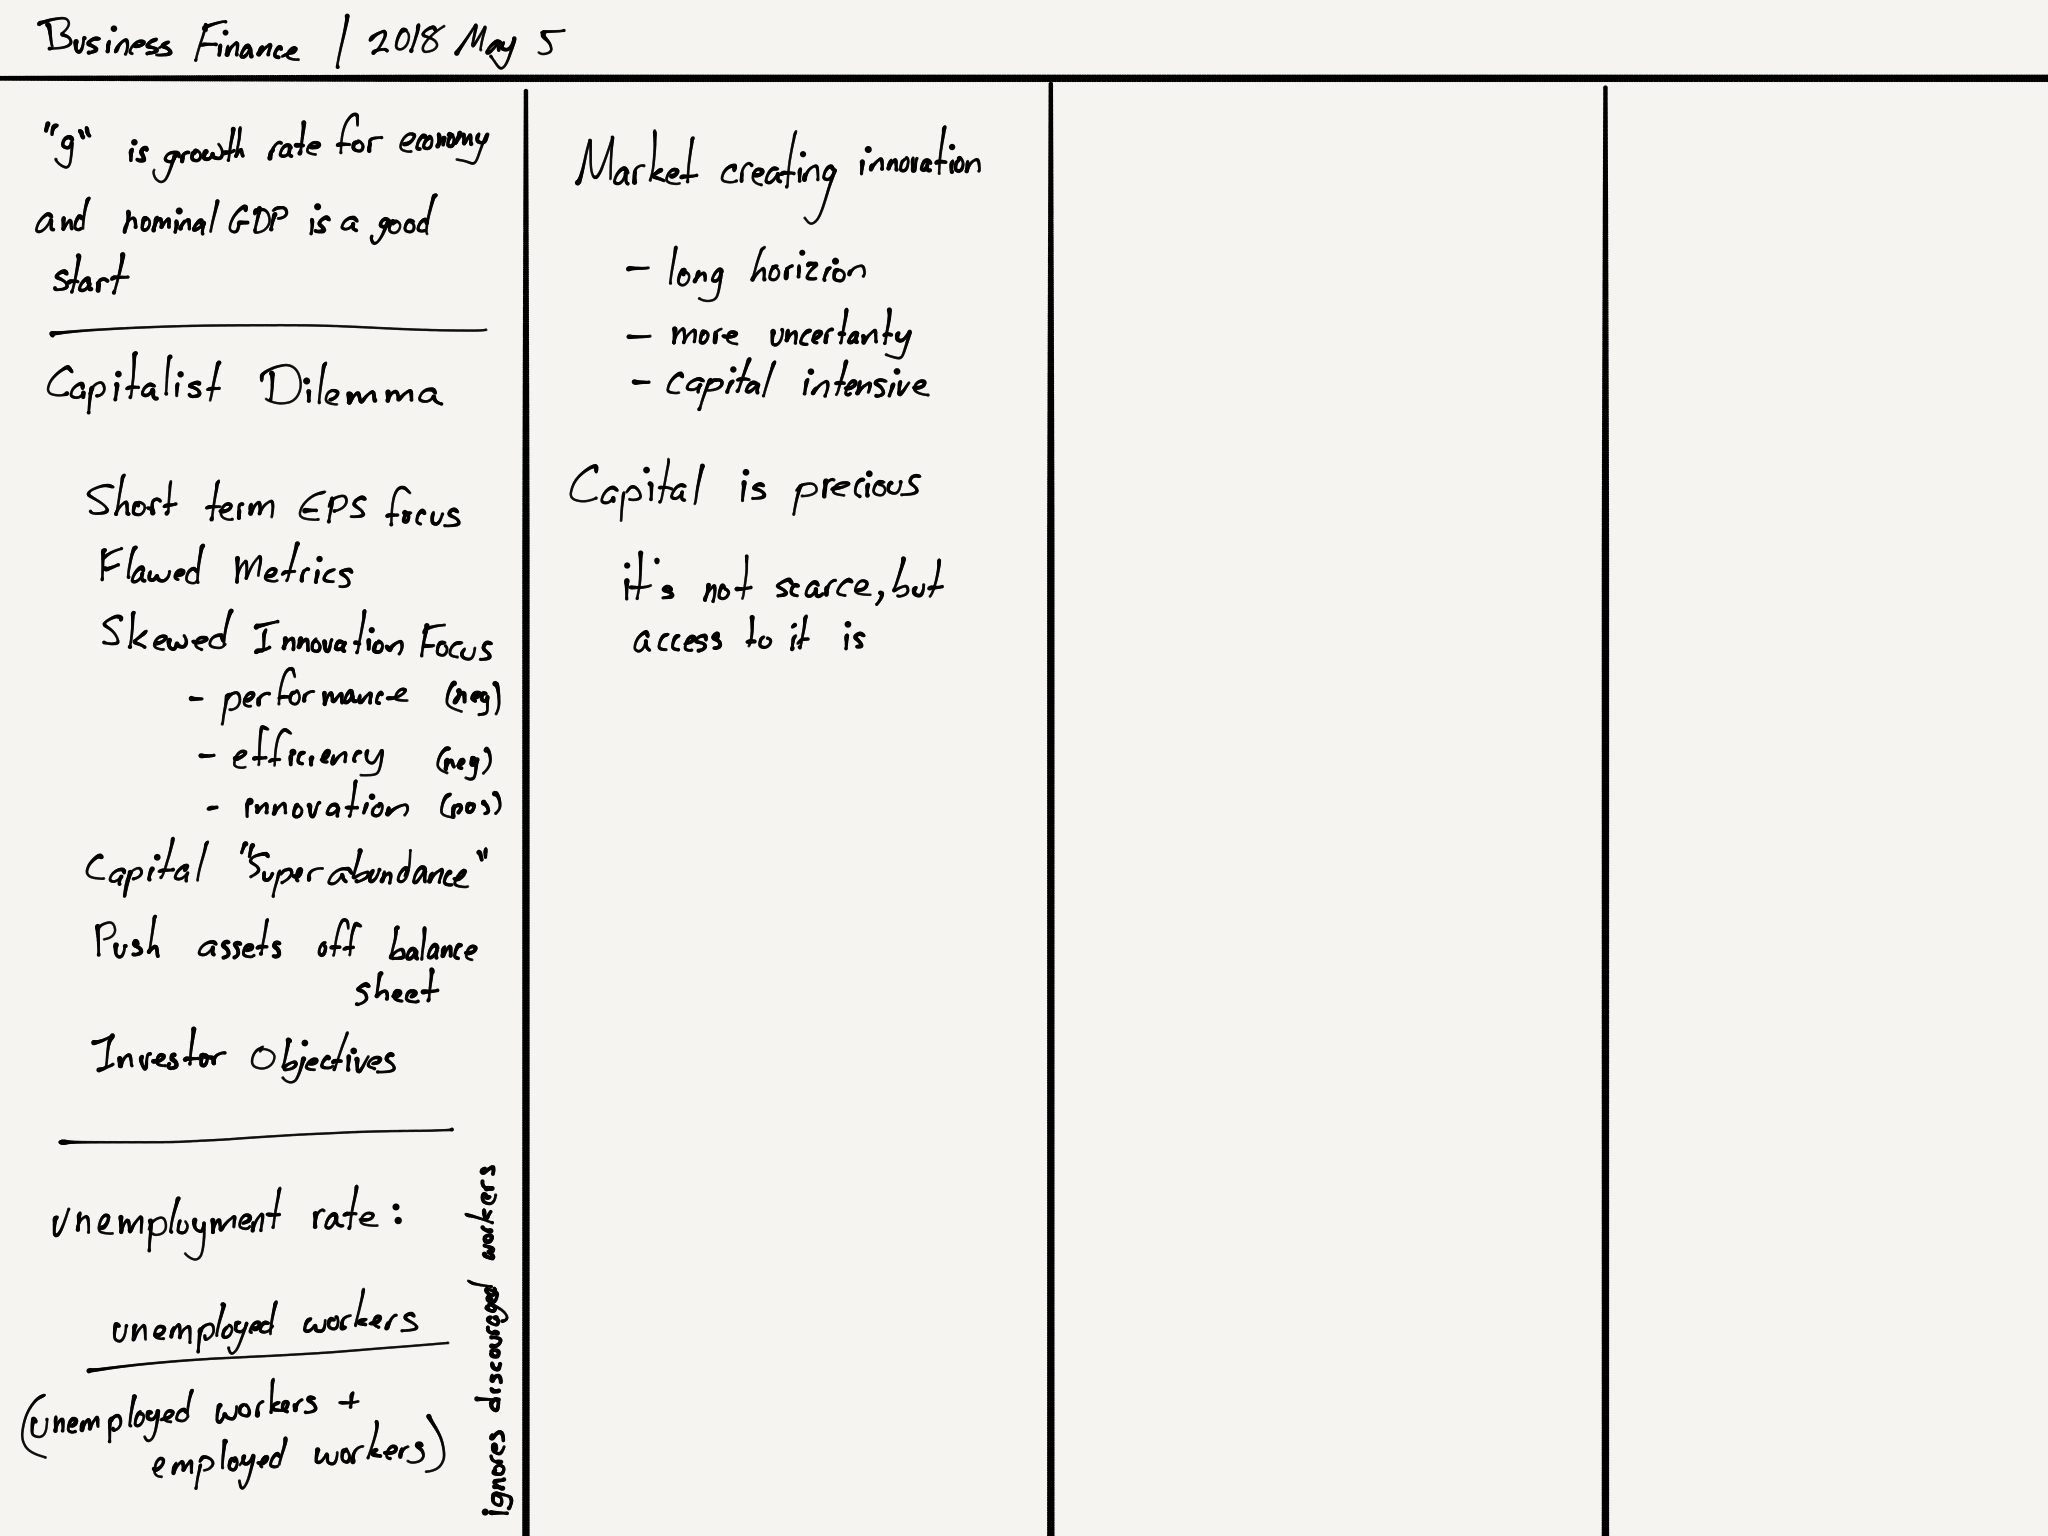 Business Finance | 2018 May 5
"g" is growth rate for economy
and nominal GDP is a good
start
Capitalist Dilemma
Short term EPS focus
Flawed Metrics
Skewed Innovation Focus
- performance (neg)
- efficiency (neg)
- innovation (pos)
Capital "Superabundance"
Push assets off balance
sheet
Investor Objectives
unemployment rate:
unemployed workers
(unemployed workers +
employed workers)
ignores discouraged workers
Market creating innovation
- long horizion
- more uncertanty
- capital intensive
Capital is precious
it's not scarce, but
access to it is